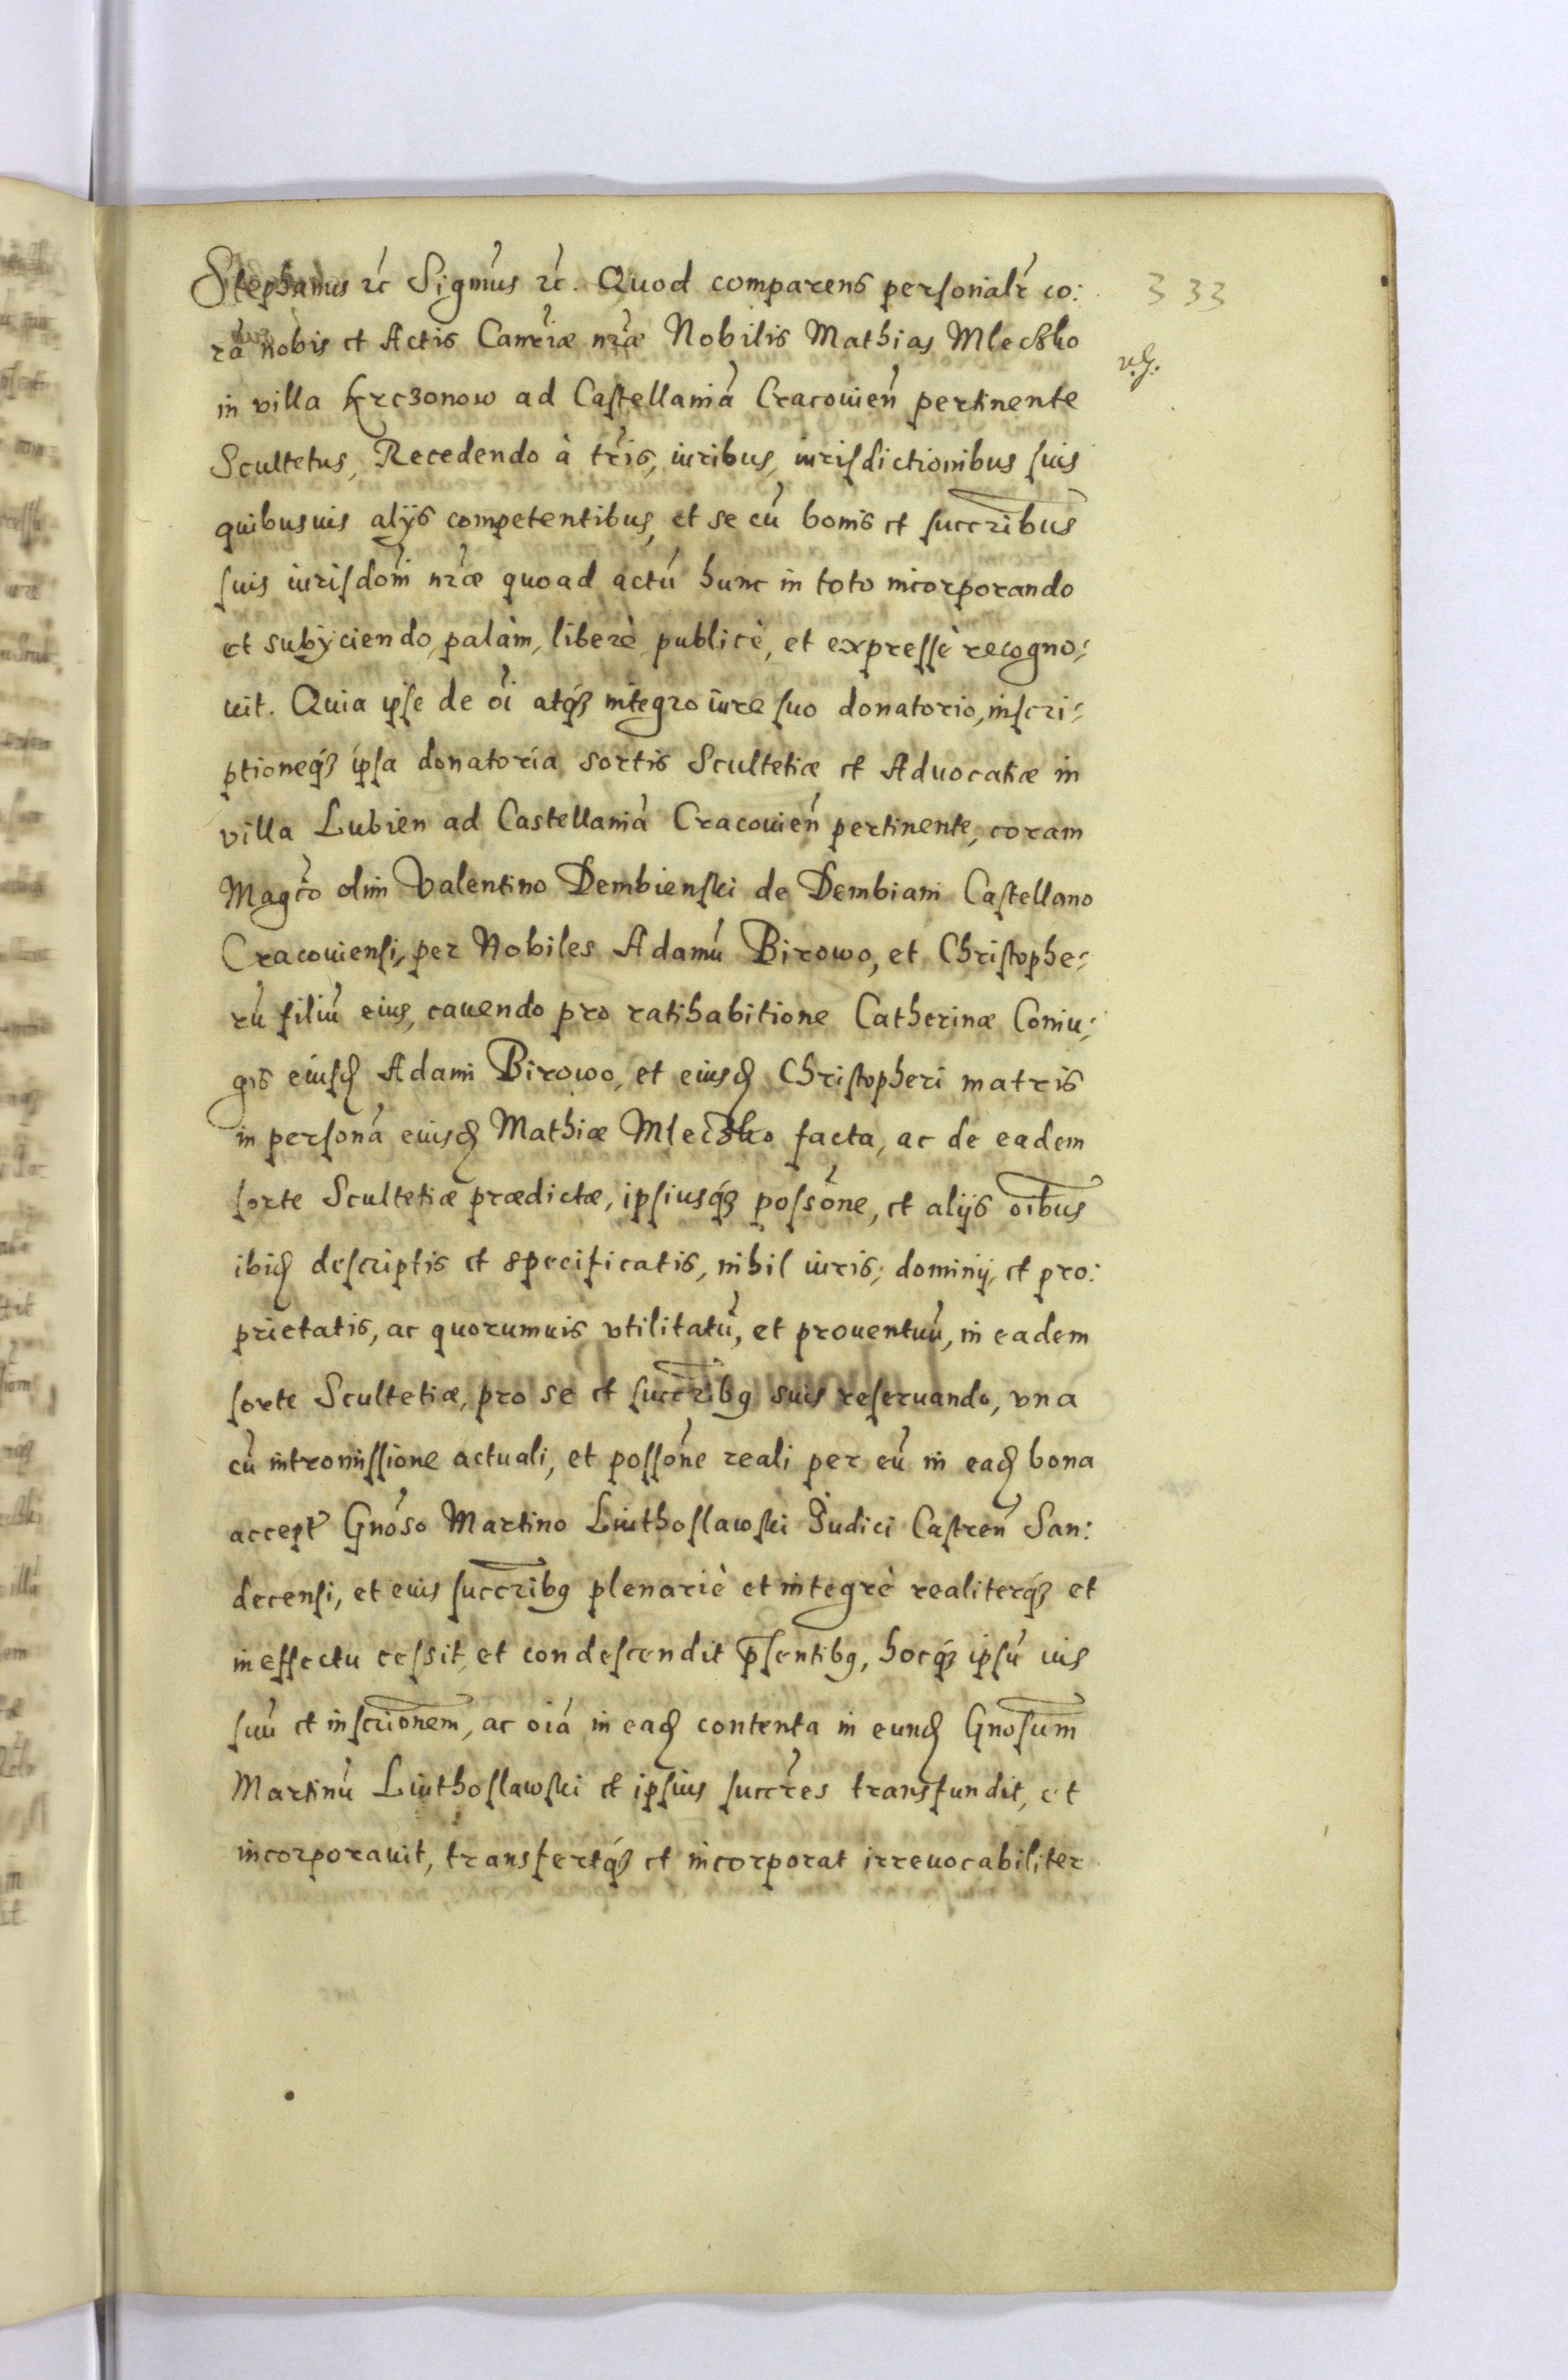 Stephanus rc̃ Signũs rc̃. Quod comparens personalr̃ co: 333
rã nobis et Actis Camẽriæ nr̃æ Nobilis Mathias Mleczko
in villa Krczonow ad Castellaniã Cracouieñ pertinente
Scultetus, Recedendo à tr̃is, iuribus, iurisdictionibus suis
quibusuis alijs competentibus, et se cũ bonis et succr̃ibus
suis iurisdõni nr̃æ quoad actũ hunc in toto incorporando
et subijciendo, palàm, liberè publicè, et expressè recogno:
uit. Quia ipse de õi atq́ꝫ integro iure suo donatorio, inscri:
ptioneq́ꝫ ipsa donatoria sortis Scultetiæ et Aduocatiæ in
villa Lubien ad Castellaniã Cracouieñ pertinente, coram
Magc̃o olim Valentino Dembienski de Dembiani Castellano
Cracouiensi, per Nobiles Adamũ Birowo, et Christophe:
rũ filiũ eius, cauendo pro ratihabitione Catherinæ Coniu:
gis eiusd̃ Adami Birowo, et eiusd̃ Christopheri matris
in personã eiusd̃ Mathiæ Mleczko facta, ac de eadem
sorte Scultetiæ prædictæ, ipsiusq́ꝫ possõne, et alijs oĩbus
ibid̃ descriptis et specificatis, nihil iuris, dominij, et pro:
prietatis, ac quorumuis vtilitatũ, et prouentuũ, in eadem
sorte Scultetiæ, pro se et succr̃ibꝯ suis reseruando, vna
cũ intromissione actuali, et possõne reali per eũ in ead̃ bona
accept̃ Gnõso Martino Liuthoslawski Iudici Castreñ San:
decensi, et eius succr̃ibꝯ plenariè et integrè realiterq́ꝫ et
in effectu cessit, et condescendit p̃sentibꝯ, hocq́ꝫ ipsũ ius
suũ et inscriõnem, ac oiã in ead̃ contenta in eund̃ Gnõsum
Martinũ Liuthoslawski et ipsius succr̃es transfundit, et
incorporauit, transfertq́ꝫ et incorporat irreuocabiliter